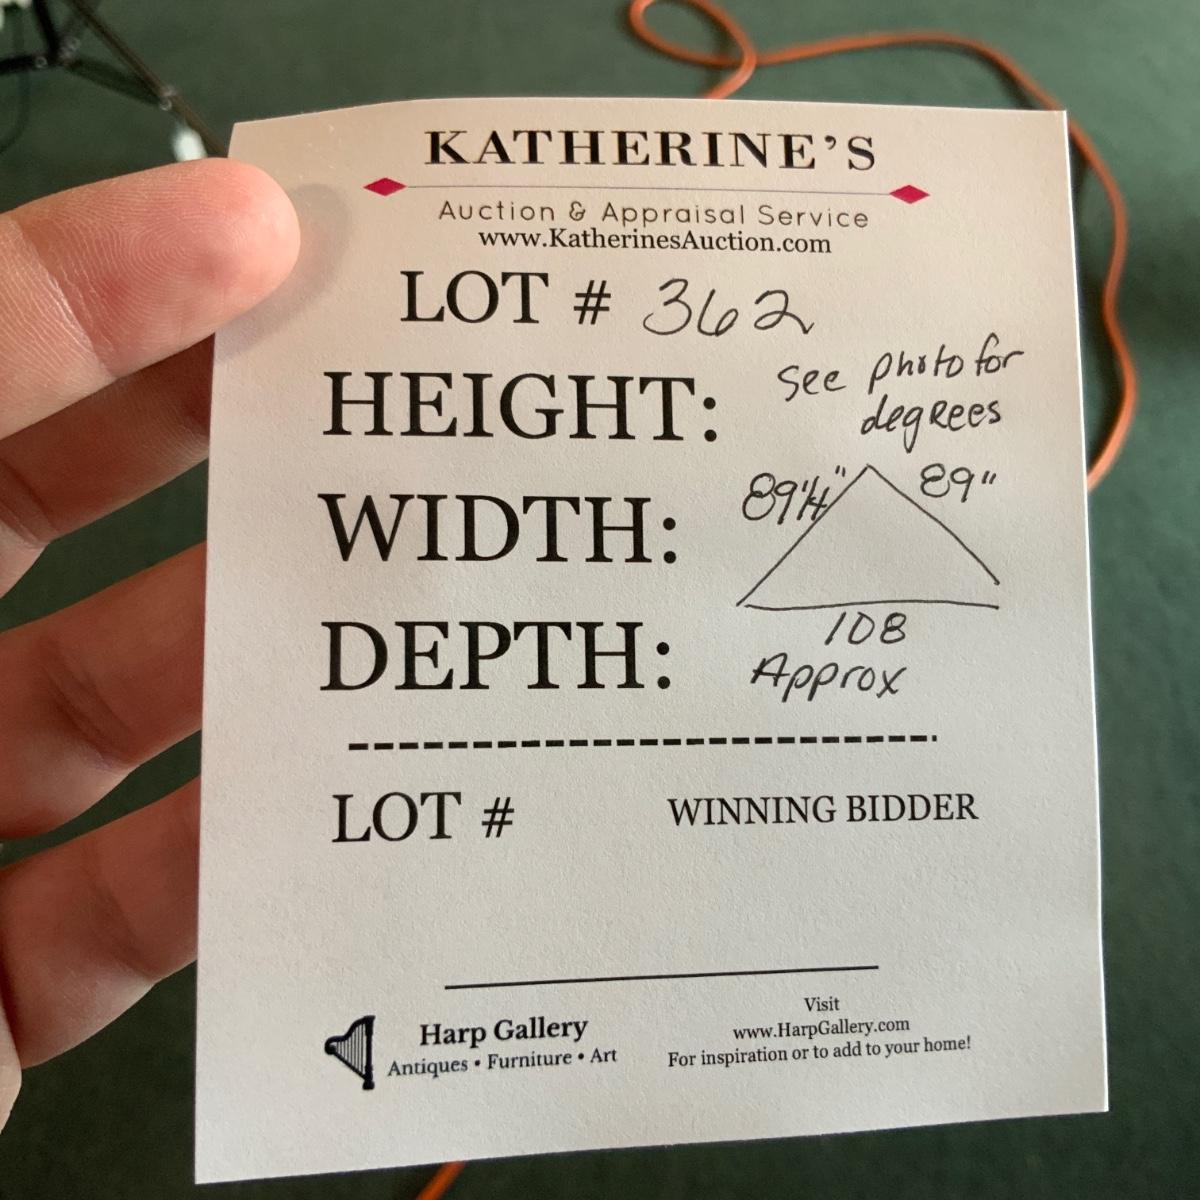 KATHERINE'S
Auction & Appraisal Service
www.KatherinesAuction.com
LOT # 362
HEIGHT: See photo for
degrees
WIDTH: 89 1/4" 89"
DEPTH: 108
Approx
LOT # WINNING BIDDER
Harp Gallery
Antiques • Furniture • Art
Visit
www.HarpGallery.com
For inspiration or to add to your home!